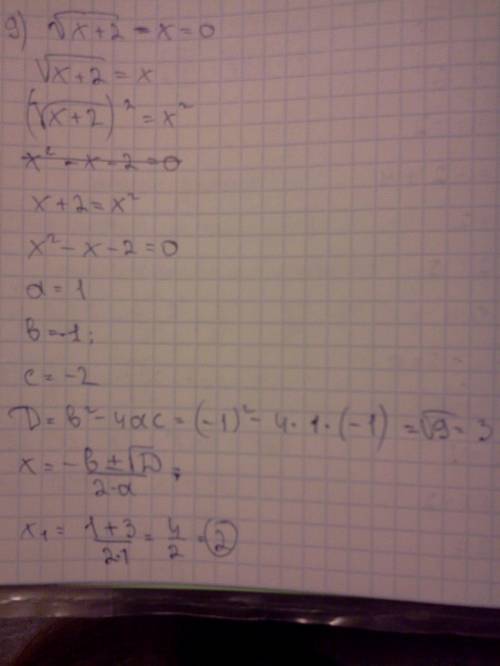 9) √(x+2) - x = 0
√(x+2) = x
(√(x+2))² = x²
x² - x - 2 = 0
x + 2 = x²
x² - x - 2 = 0
a = 1
b = -1;
c = -2
D = b² - 4ac = (-1)² - 4·1·(-1) = √9 = 3
x = (-b ± √D)/(2·a);
x₁ = (1+3)/(2·1) = 4/2 = 2